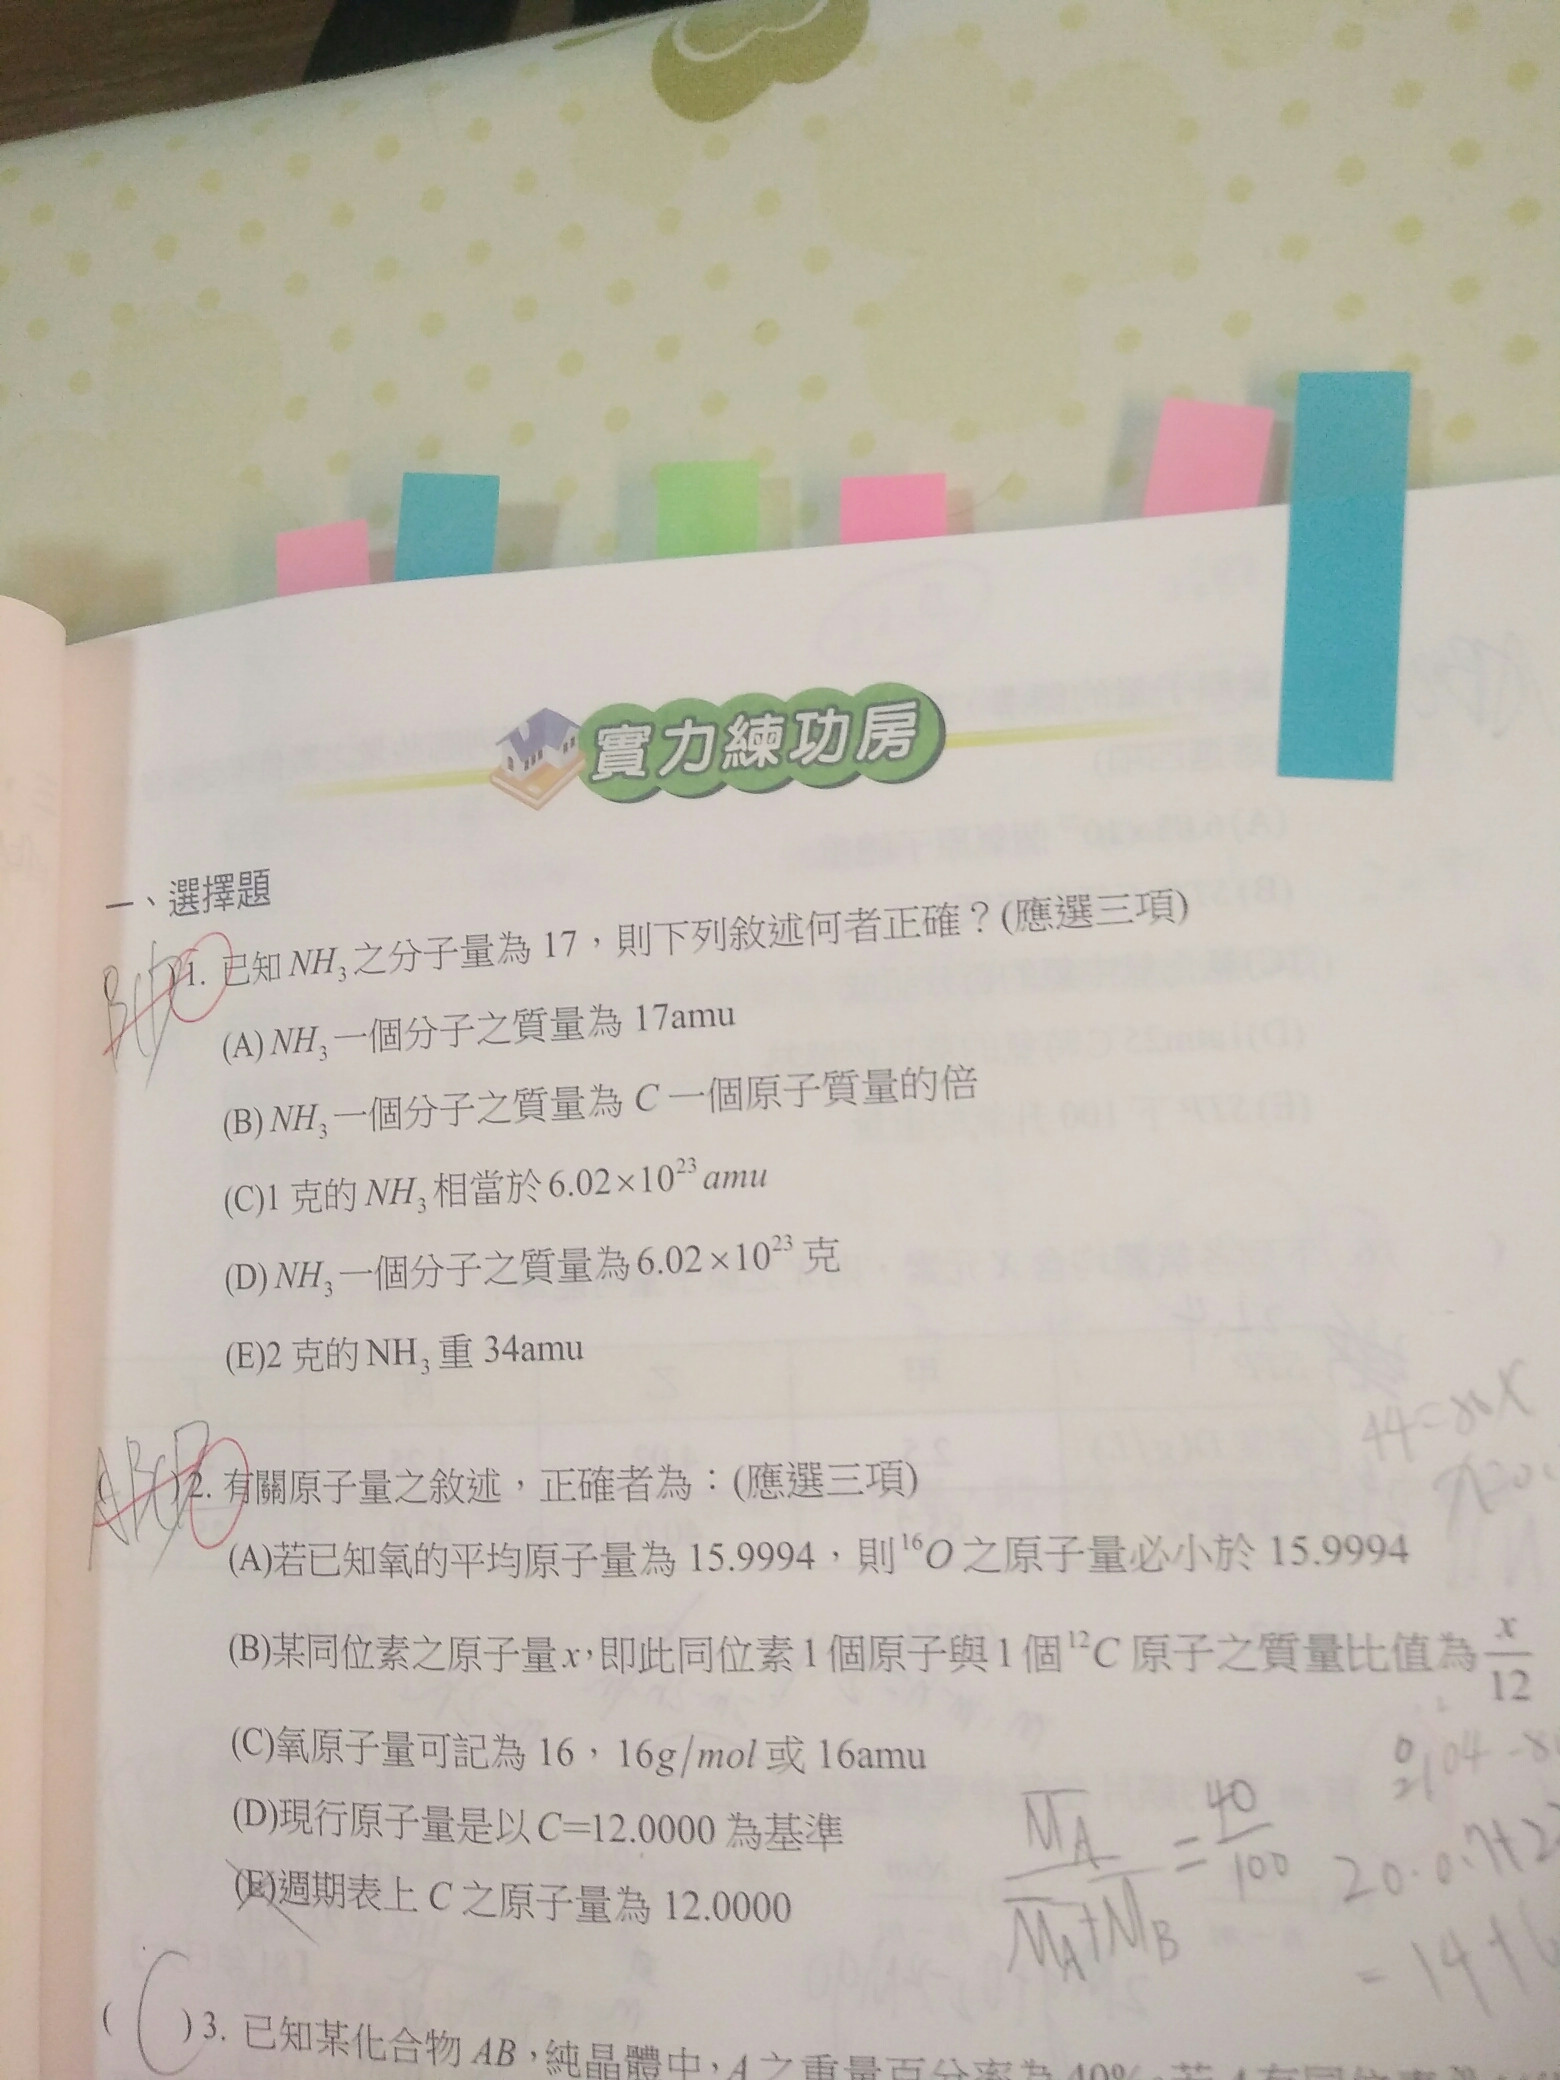 實力練功房
一、選擇題
1. 已知 NH₃ 之分子量為 17，則下列敘述何者正確？(應選三項)
(A) NH₃ 一個分子之質量為 17amu
(B) NH₃ 一個分子之質量為 C 一個原子質量的倍
(C)1 克的 NH₃ 相當於 6.02×10²³ amu
(D) NH₃ 一個分子之質量為 6.02×10²³ 克
(E)2 克的 NH₃ 重 34amu
44=
)2. 有關原子量之敘述，正確者為：(應選三項)
(A)若已知氧的平均原子量為 15.9994，則 ¹⁶O 之原子量必小於 15.9994
(B)某同位素之原子量 x，即此同位素 1 個原子與 1 個 ¹²C 原子之質量比值為 x/12
(C)氧原子量可記為 16，16g/mol 或 16amu
(D)現行原子量是以 C=12.0000 為基準
M_A/(M_A+M_B) = 40/100
(E)週期表上 C 之原子量為 12.0000
( )3. 已知某化合物 AB，純晶體中，A 之重量百分率為 40%，若 A 有同位素